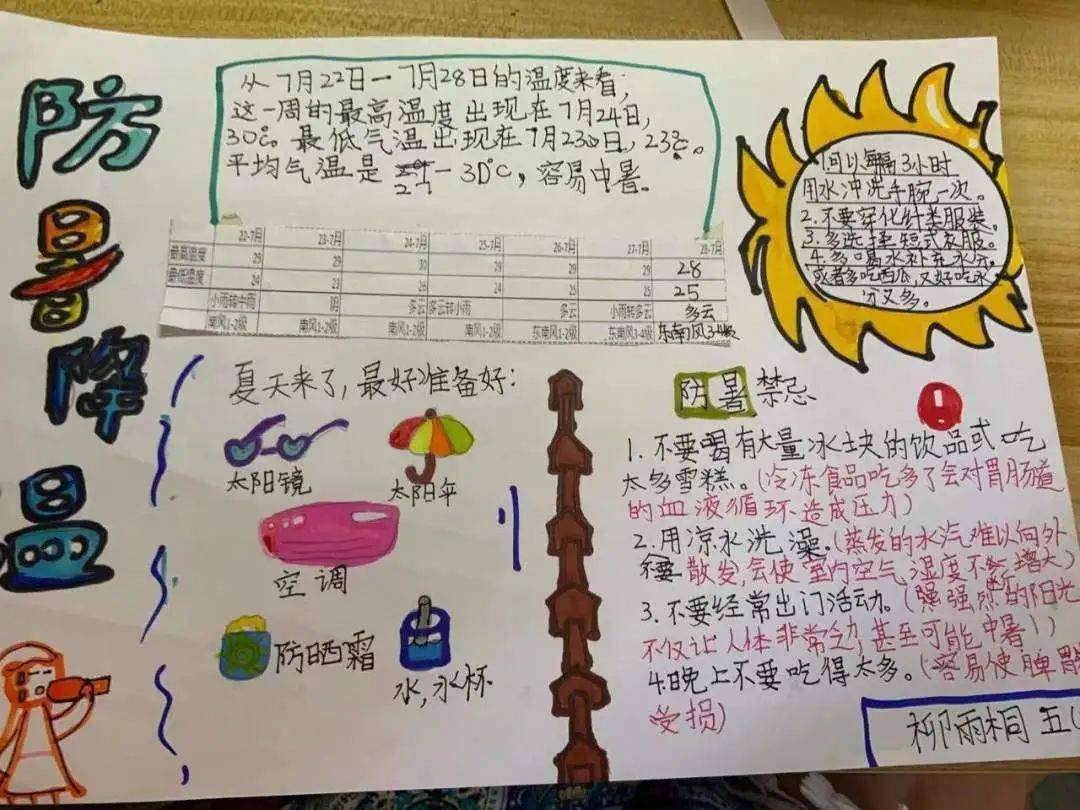 防
暑
降
温
从7月22日—7月28日的温度来看,
这一周的最高温度出现在7月24日,
30℃。最低气温出现在7月23日,23℃。
平均气温是 27—30℃,容易中暑。
22-7月 23-7月 24-7月 25-7月 26-7月 27-7月 28-7月
最高温度 29 29 30 29 29 29 28
最低温度 24 23 26 24 25 25 25
小雨转中雨 阴 多云 多云转小雨 多云 小雨转多云 多云
南风1-2级 南风1-2级 南风1-2级 南风1-2级 东南风1-2级 东南风3-4级 东南风3-4级
1.可以每隔3小时
用水冲洗手腕一次。
2.不要穿化纤类服装
3.多选择短式衣服。
4.多喝水补充水分。
或者多吃西瓜,又好吃水
分又多。
夏天来了,最好准备好:
太阳镜
太阳伞
空调
防晒霜
水,水杯
防暑禁忌
1.不要喝有大量冰块的饮品或吃
太多雪糕。(冷冻食品吃多了会对胃肠道
的血液循环造成压力)
2.不要用凉水洗澡。(蒸发的水汽难以向外
散发,会使室内空气湿度不断增大)
3.不要经常出门活动。(强强烈的阳光
不仅让人体非常乏,甚至可能中暑!)
4.晚上不要吃得太多。(容易使脾胃
受损)
柳雨桐 五(